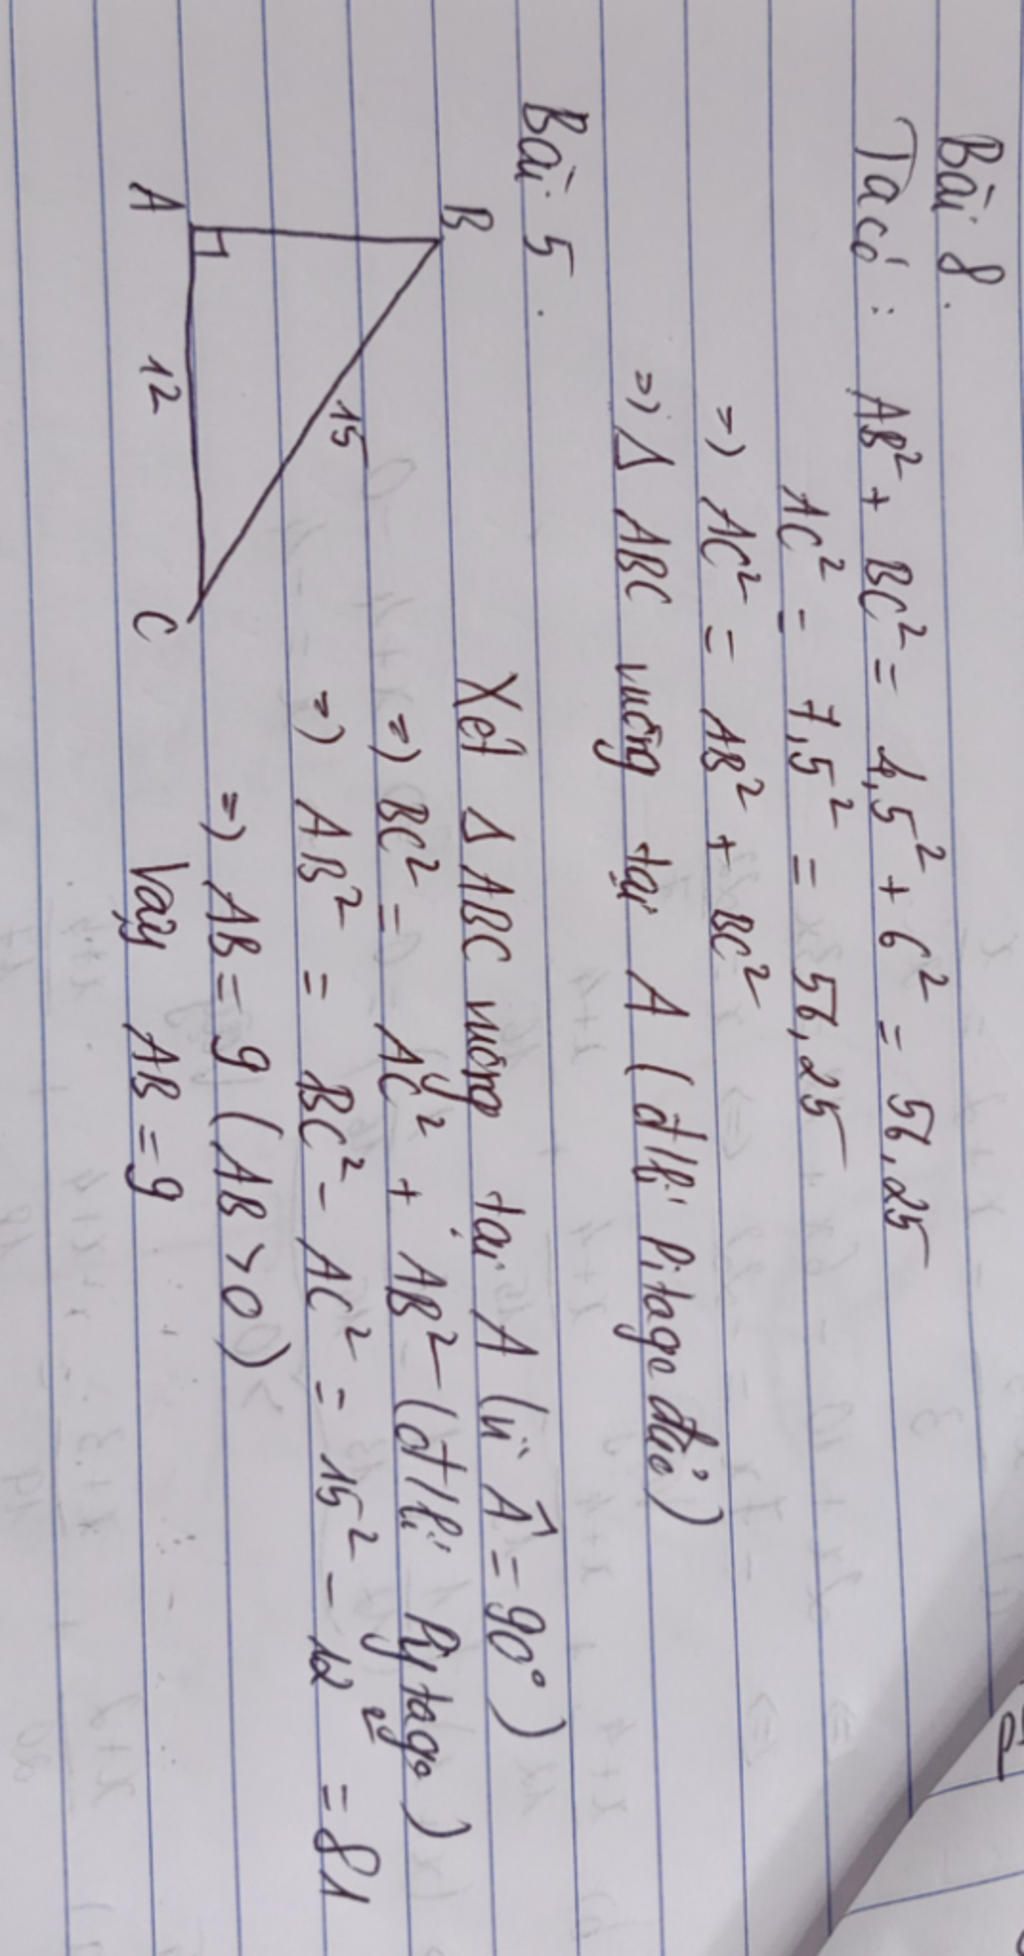 Bài 8.
Ta có : AB² + BC² = 4,5² + 6² = 56,25
AC² = 7,5² = 56,25
=> AC² = AB² + BC²
=> Δ ABC vuông tại A (đ/lí Pitago đảo)
Bài 5.
B
A
C
15
12
Xét Δ ABC vuông tại A (vì Â = 90°)
=> BC² = AC² + AB² (đ/lí Pytago)
=> AB² = BC² - AC² = 15² - 12² = 81
=> AB = 9 (AB > 0)
Vậy AB = 9